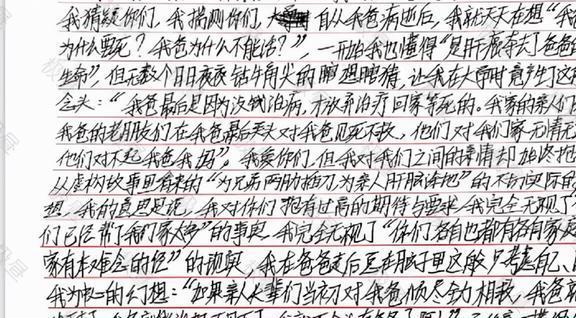 我猜疑你们，我揣测你们，自从我爸病逝后，我就天天在想“我
为什么要死？我爸为什么不能活？”，一开始我也懂得“是肝癌夺去了爸爸
生命”，但无数个日日夜夜钻牛角尖的瞎想瞎猜，让我在大学时竟产生了这
念头：“我爸最后是因为没钱治病，才放弃治疗回家等死的。我家的亲人们
我爸的老朋友们在我爸最后关头对我爸见死不救，他们对我们家无情无
他们对不起我爸我妈”。我爱你们，但我对我们之间的亲情却始终抱
从虚构故事里看来的“为兄弟两肋插刀为亲人肝脑涂地”的不切实际的
想，我的意思是说，我对你们抱有过高的期待与要求，我完全无视了
们已经帮了我们家太多”的事实，我完全无视了“你们各自也都有各自家庭
家有本难念的经”的现实，我在爸爸走后逗在脑子里这般只考虑自己
我为中心的幻想：“如果亲人长辈们当初对我爸倾尽全力相救，我爸就